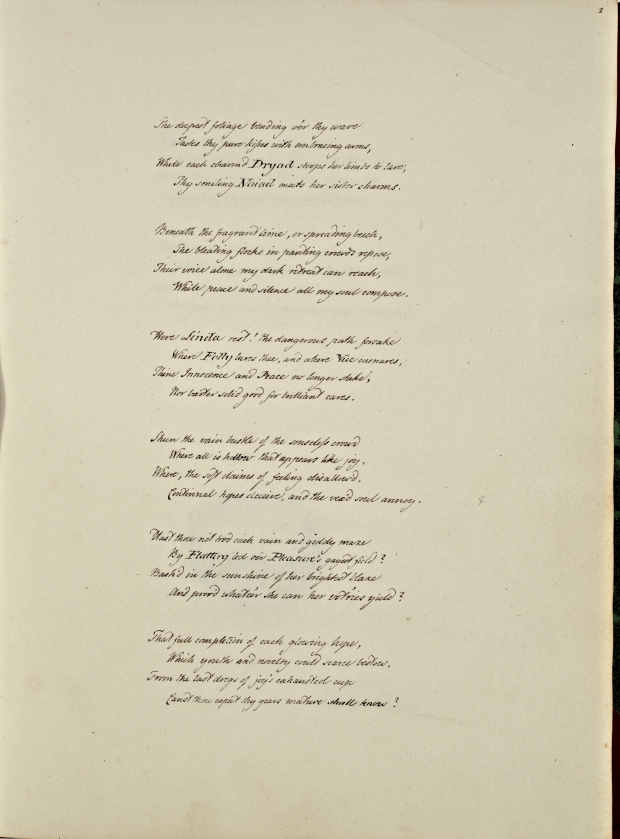 2
The deepest foliage bending o'er thy wave
Tastes thy pure kisses with embracing arms,
While each charm'd Dryad stoops her limbs to lave,
Thy smiling Naiad meets her sister charms.
Beneath the fragrant lime, or spreading beech,
The bleating flocks in panting crouds repose,
Their voice alone my dark retreat can reach,
While peace and silence all my soul compose.
Here Linda rest! the dangerous path forsake
Where Folly lures thee, and where Vice ensnares,
Thine Innocence and Peace no longer stake,
Nor barter solid good for brilliant cares.
Shun the vain bustle of the senseless crowd
Where all is hollow that appears like joy.
Where, the soft claims of feeling disallow'd,
Continual hopes deceive, and the vex'd soul annoy.
Hast thou not trod each vain and giddy maze
By Flattery led o'er Pleasure's gayest field?
Bask'd in the sunshine of her brightest blaze
And prov'd whate'er she can her vot'ries yield?
That full completion of each glowing hope,
Which youth and novelty could scarce bestow,
From the last dregs of joy's exhausted cup
Canst thou expect thy years mature shall know?